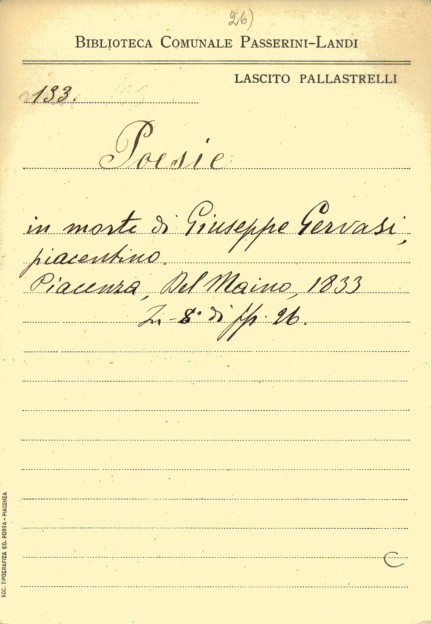 26)
BIBLIOTECA COMUNALE PASSERINI-LANDI
LASCITO PALLASTRELLI
133.
Poesie
in morte di Giuseppe Gervasi,
piacentino.
Piacenza, Del Maino, 1833
In-8° di pp. 26.
C
SOC. TIPOGRAFICA ED. PORTA - PIACENZA